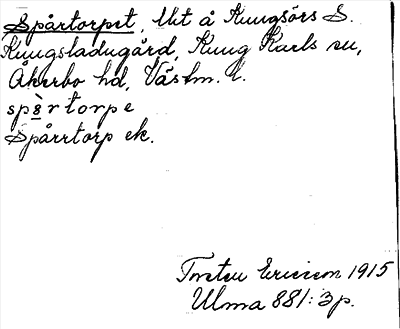 Spårtorpet, Utt å Kungsörs S.
Kungsladugård, Kung Karls sn,
Åkerbo hd, Västm. l.
spårtorpe
Spårrtorp ek.
Torsten Ericsson 1915
Ulma 881:3 p.